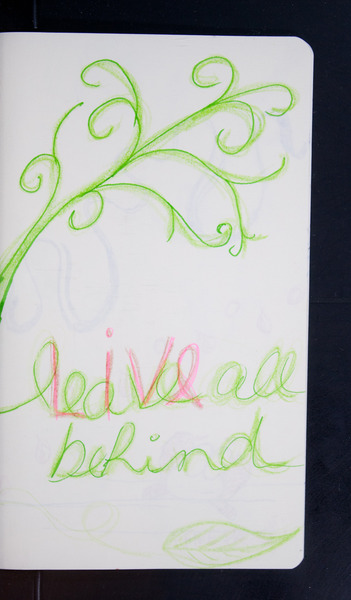 leave all
LiVe
behind